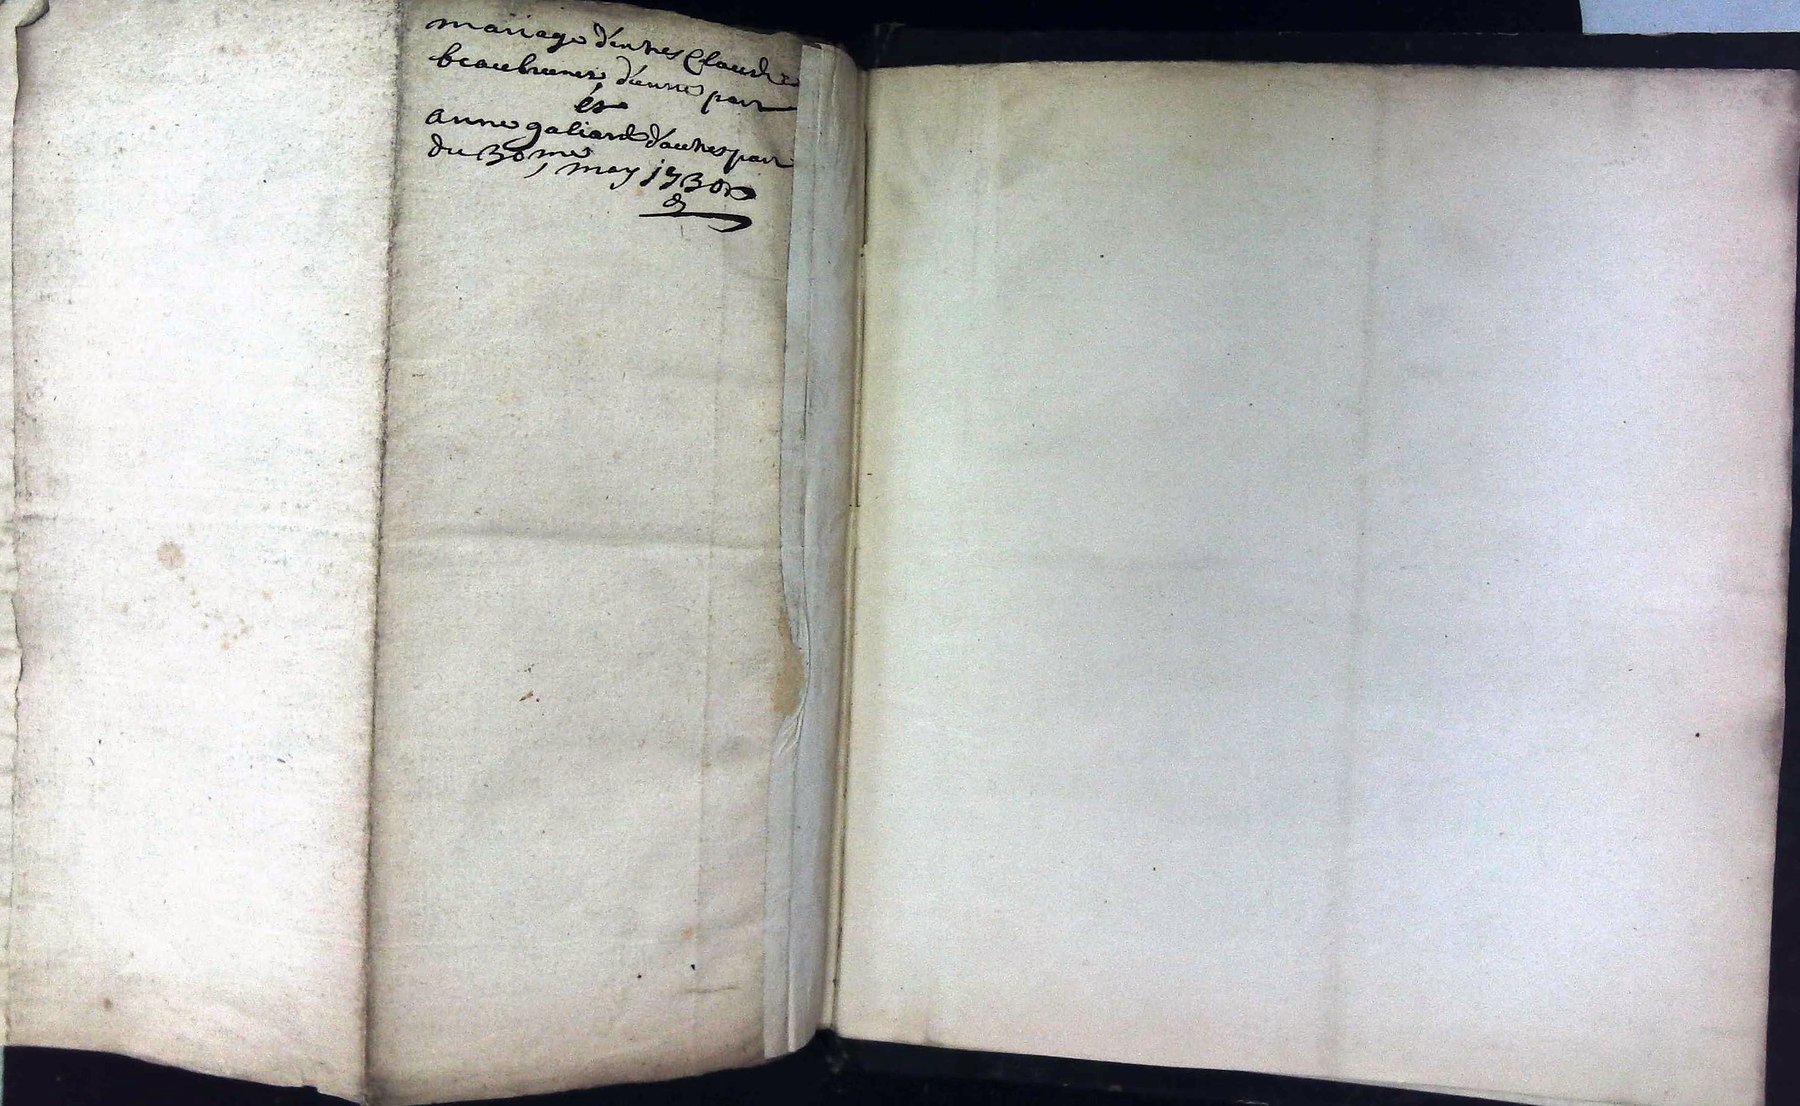 mariage d'entre Claude
beaubrun d'une part
et
anne galiard d'autre part
du 30me may 1730